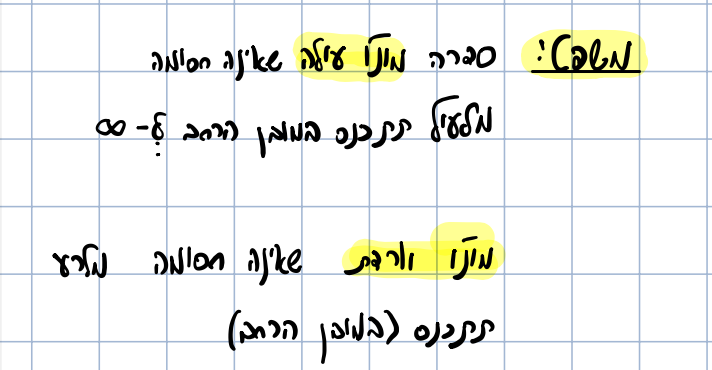 משפט: סדרה מונו' עולה שאינה חסומה
מלעיל תתכנס במובן הרחב ל- ∞
מונו' יורדת שאינה חסומה מלרע
תתכנס (במובן הרחב)